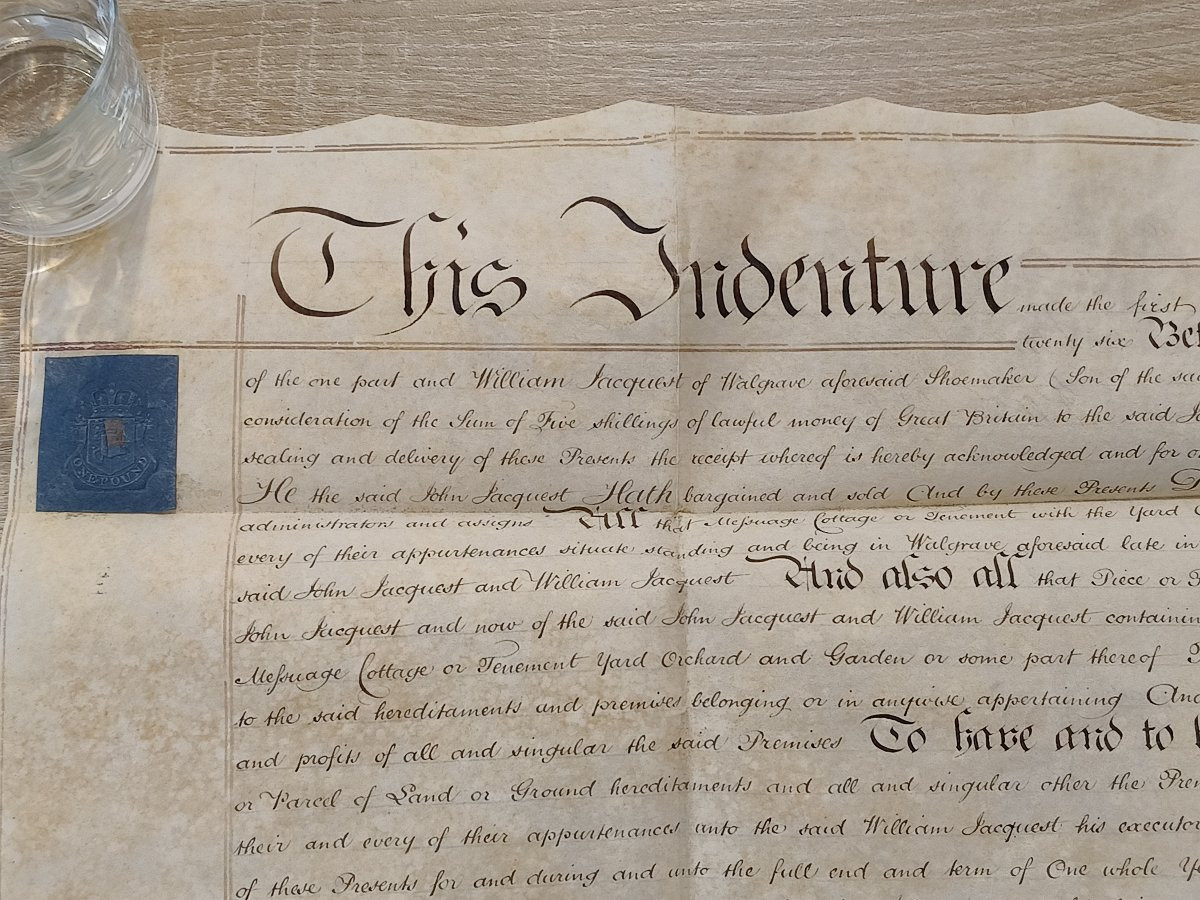 This Indenture made the first
twenty six
of the one part and William Jacquest of Walgrave aforesaid Shoemaker (Son of the
consideration of the Sum of Five shillings of lawful money of Great Britain to the said
sealing and delivery of these Presents the receipt whereof is hereby acknowledged and for
He the said John Jacquest Hath bargained and sold And by these Presents
administrators and assigns All that Meſsuage Cottage or Tenement with the Yard
every of their appurtenances situate standing and being in Walgrave aforesaid late in
said John Jacquest and William Jacquest And also all that Piece or
John Jacquest and now of the said John Jacquest and William Jacquest
Meſsuage Cottage or Tenement Yard Orchard and Garden or some part thereof
to the said hereditaments and premises belonging or in anywise appertaining
and profits of all and singular the said Premises To have and to
or Parcel of Land or Ground hereditaments and all and singular other the
their and every of their appurtenances unto the said William Jacquest his
of these Presents for and during and unto the full end and term of One whole
ONE POUND